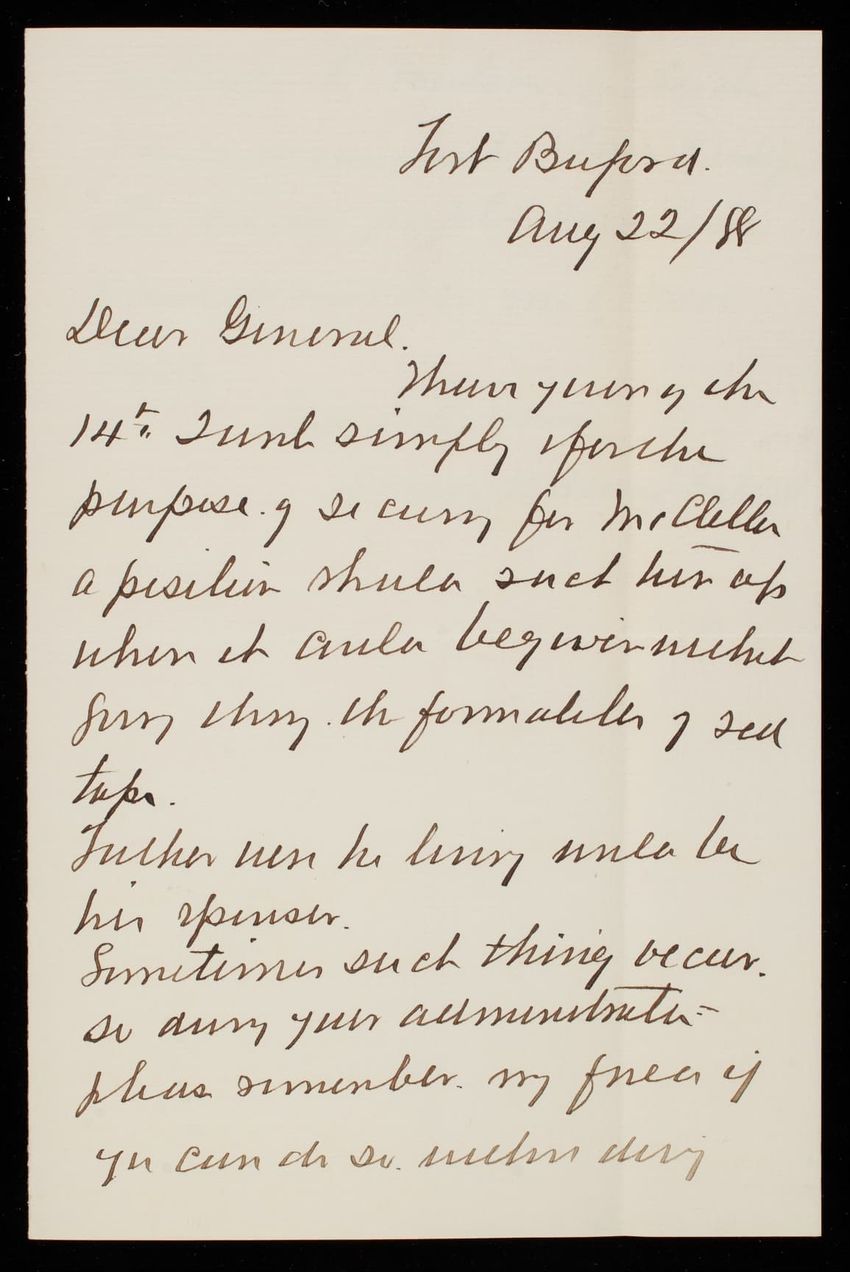 Fort Buford.
Aug 22/88
Dear General.
I have yours of the
14th I wrote simply for the
purpose of securing for McClellan
a position should such turn up
where it could be given without
going throug the formalities of red
tape.
Father were he living would be
his sponsor.
Sometimes such things occur.
so during your administration
please remember my friend if
you can do so without doing